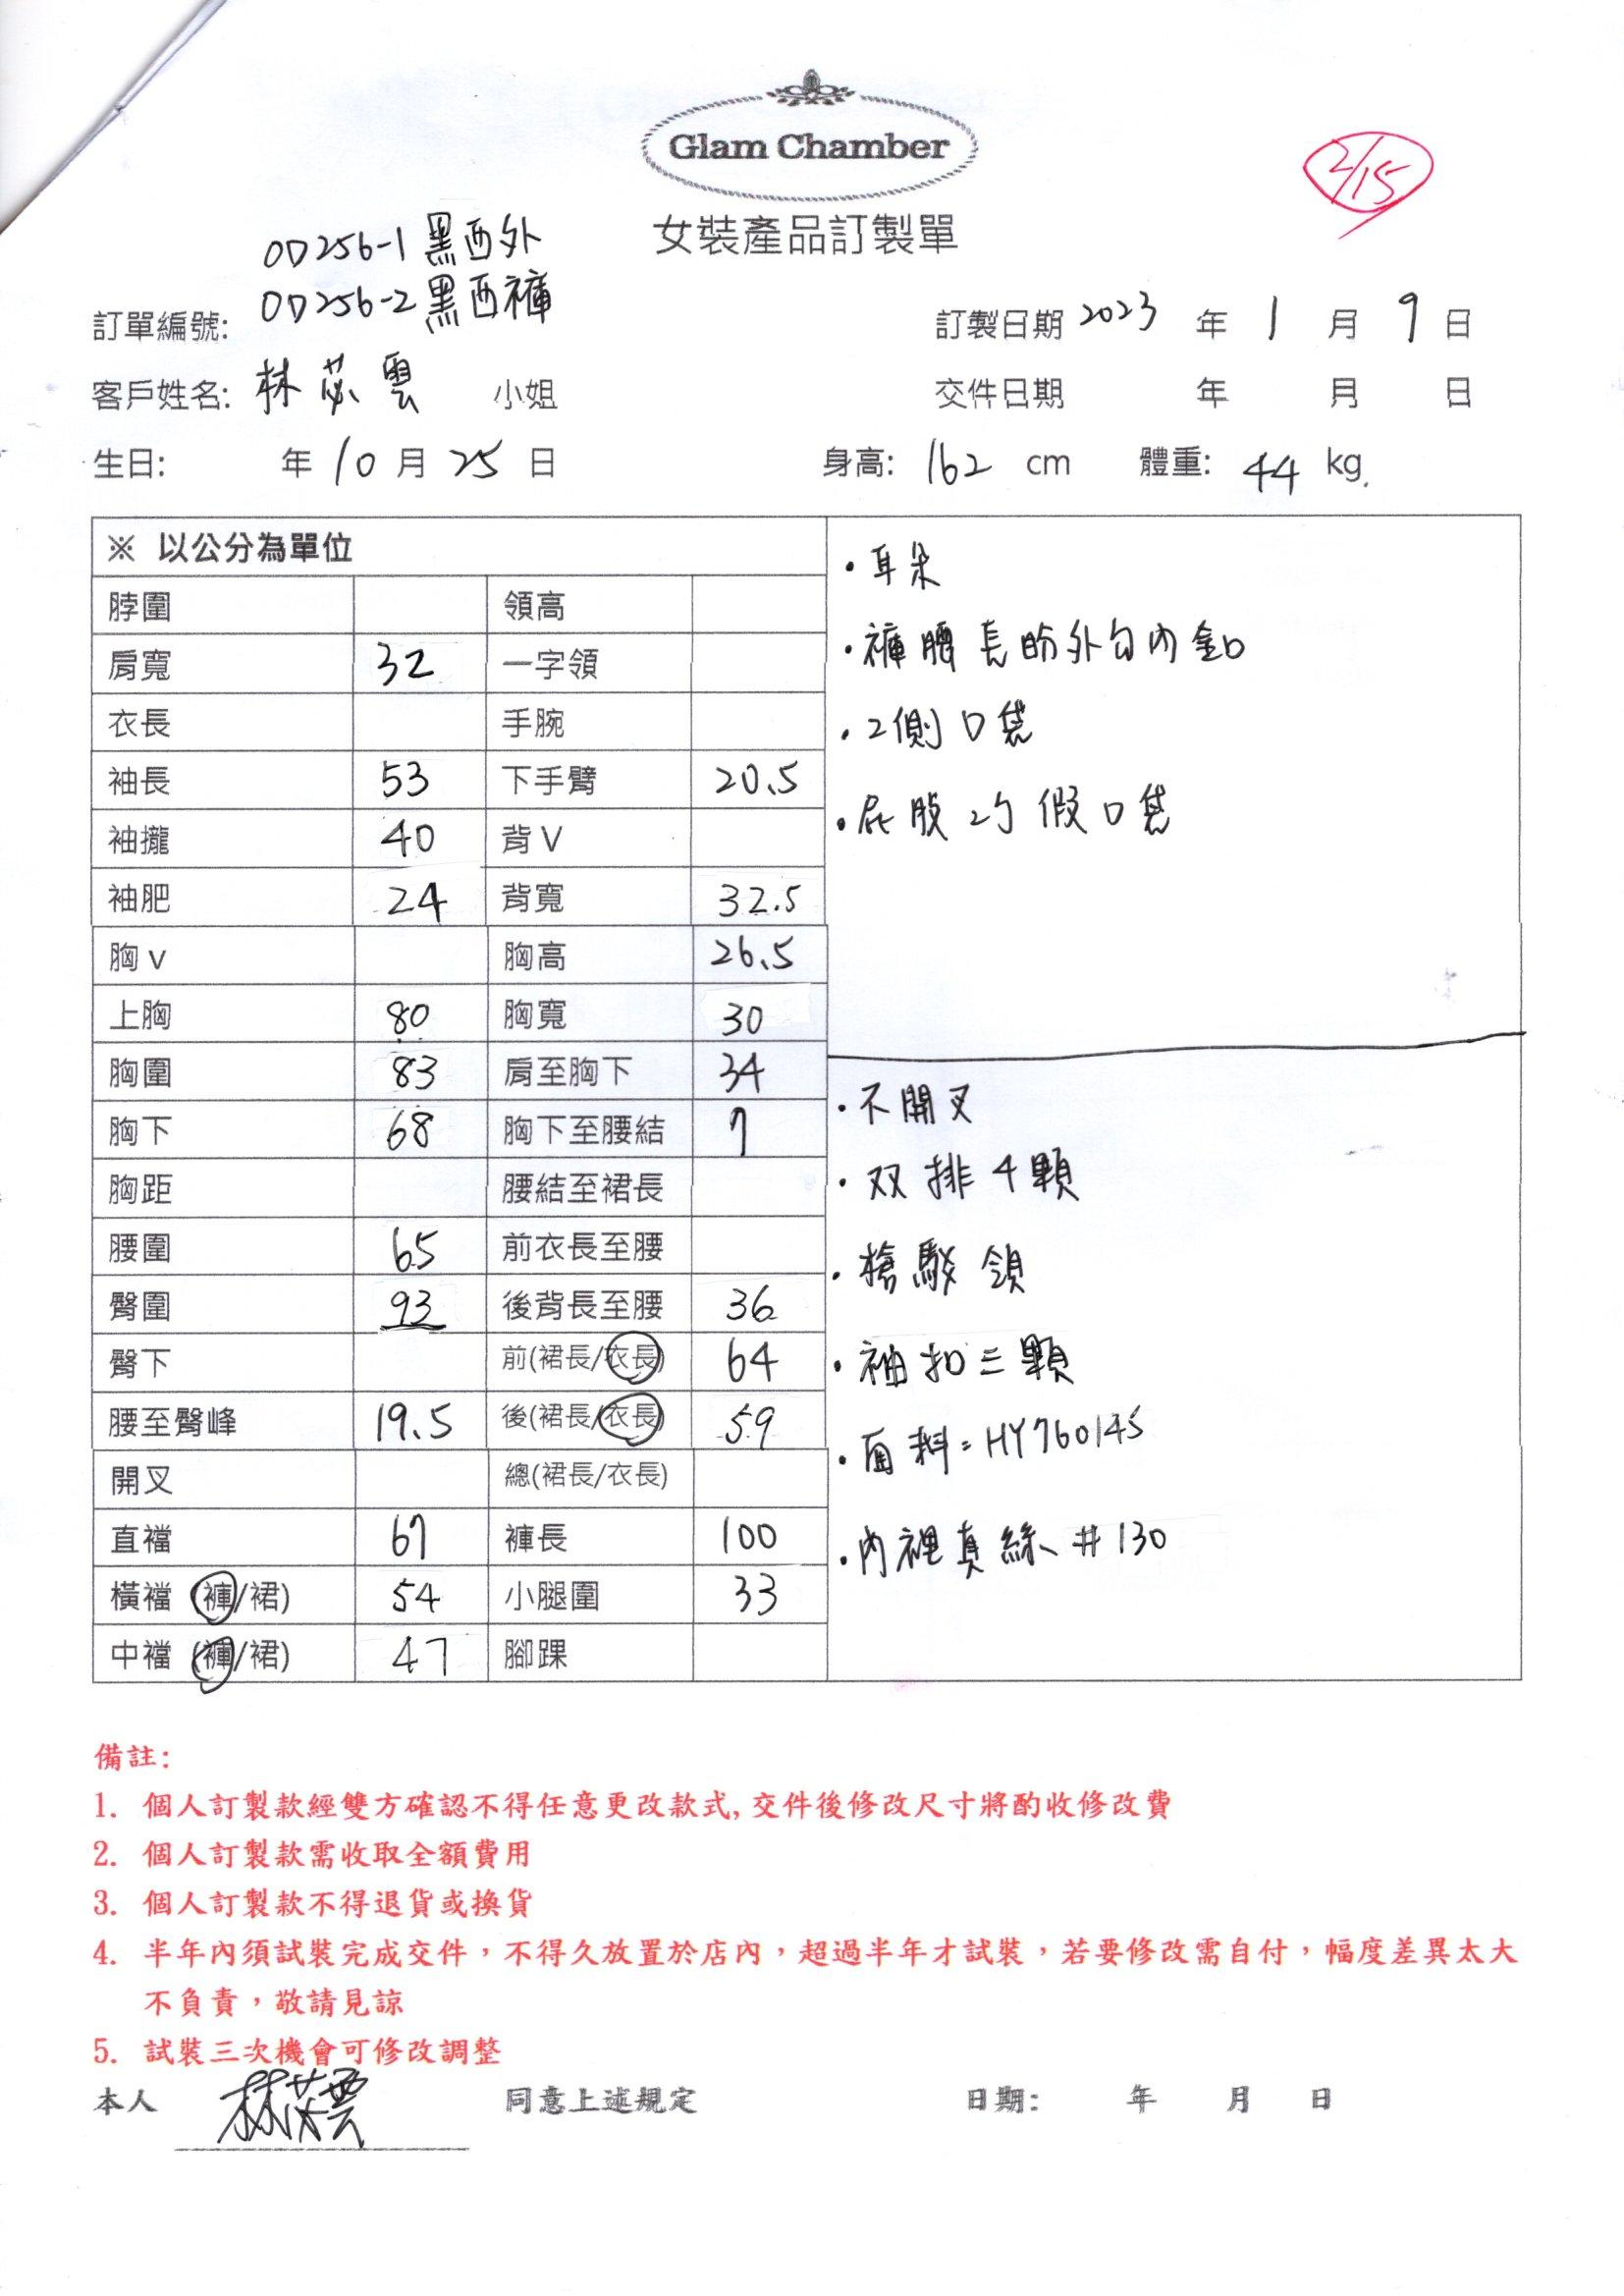 Glam Chamber
2/15
女裝產品訂製單
OD256-1 黑西外
OD256-2 黑西褲
訂單編號:
訂製日期 2023 年 1 月 9 日
客戶姓名: 林苾雲 小姐
交件日期 年 月 日
生日: 年 10 月 25 日
身高: 162 cm 體重: 44 kg.
※ 以公分為單位
脖圍 領高
肩寬 32 一字領
衣長 手腕
袖長 53 下手臂 20.5
袖攏 40 背V
袖肥 24 背寬 32.5
胸v 胸高 26.5
上胸 80 胸寬 30
胸圍 83 肩至胸下 34
胸下 68 胸下至腰結 7
胸距 腰結至裙長
腰圍 65 前衣長至腰
臀圍 93 後背長至腰 36
臀下 前(裙長/衣長) 64
腰至臀峰 19.5 後(裙長/衣長) 59
開叉 總(裙長/衣長)
直襠 67 褲長 100
橫襠 (褲/裙) 54 小腿圍 33
中襠 (褲/裙) 47 腳踝
·耳朵
·褲腰長的外勾內釦
·2側口袋
·屁股2勺假口袋
·不開叉
·双排4顆
·槍駁領
·袖扣三顆
·面料=HY760145
·內裡真絲#130
備註:
1. 個人訂製款經雙方確認不得任意更改款式,交件後修改尺寸將酌收修改費
2. 個人訂製款需收取全額費用
3. 個人訂製款不得退貨或換貨
4. 半年內須試裝完成交件，不得久放置於店內，超過半年才試裝，若要修改需自付，幅度差異太大
不負責，敬請見諒
5. 試裝三次機會可修改調整
本人 林苾雲 同意上述規定 日期: 年 月 日